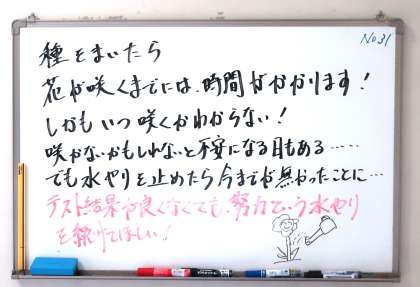 No31
種をまいたら
花が咲くまでには、時間がかかります!
しかもいつ咲くかわからない!
咲かないかもしれないと不安になる日もある……
でも水やりを止めたら今までが無かったことに…
テスト結果が良くなくても、努力という水やり
を続けてほしい!